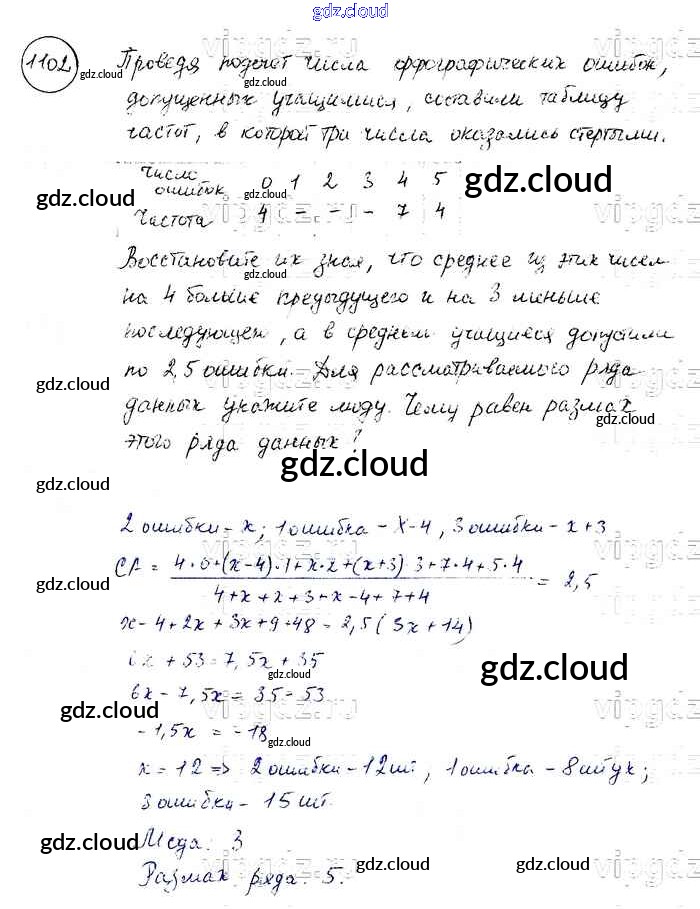 gdz.cloud
1102 Проведя подсчет числа орфографических ошибок,
gdz.cloud
допущенных учащимися, составили таблицу
частот, в которой три числа оказались стертыми.
Число ошибок 0 1 2 3 4 5 gdz.cloud
gdz.cloud
Частота 4 - - - 7 4
Восстановите их зная, что среднее из этих чисел
gdz.cloud
на 4 больше предыдущего и на 3 меньше
последующего, а в среднем учащиеся допустили
по 2,5 ошибки. Для рассматриваемого ряда
gdz.cloud
данных укажите моду. Чему равен размах
gdz.cloud
этого ряда данных?
gdz.cloud
gdz.cloud
2 ошибки - x; 1 ошибка - x-4, 3 ошибки - x+3
СА = 4·0+(x-4)·1+x·2+(x+3)·3+7·4+5·4 / 4+x+x+3+x-4+7+4 = 2,5
gdz.cloud
x-4+2x+3x+9+48=2,5(3x+14)
6x+53=7,5x+35
gdz.cloud
gdz.cloud
6x-7,5x=35-53
gdz.cloud
-1,5x = -18
gdz.cloud
x=12 => 2 ошибки-12шт, 1 ошибка-8штук;
3 ошибки-15шт.
Мода: 3
gdz.cloud
gdz.cloud
gdz.cloud
Размах ряда: 5.
gdz.cloud